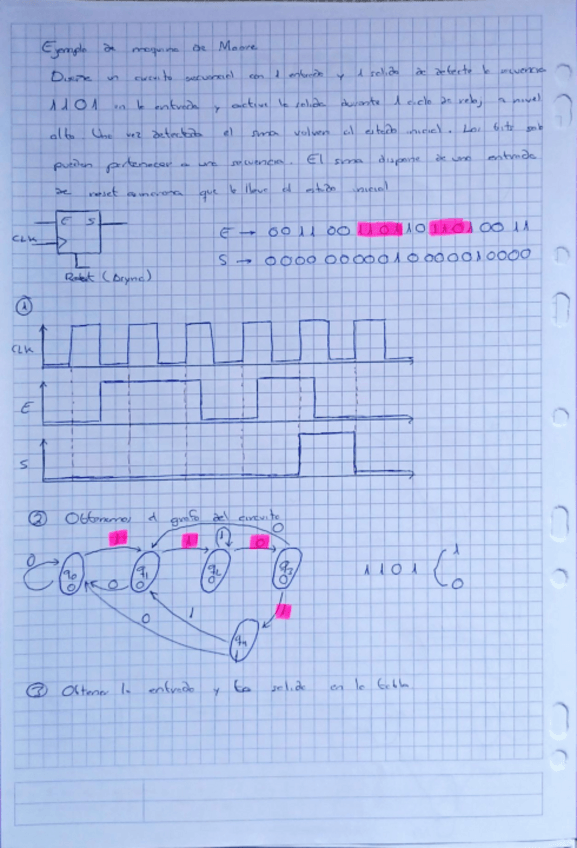 Ejemplo de maquina de Moore
Diseñe un circuito secuencial con 1 entrada y 1 salida de detecte la secuencia
1101 en la entrada y active la salida durante 1 ciclo de reloj a nivel
alto. Una vez detectada el sistema volverá al estado inicial. Los bits solo
pueden pertenecer a una secuencia. El sistema dispone de una entrada
de reset asíncrona que le lleve al estado inicial
E S
CLK
Reset (Async)
E → 00 11 00 1101 10 1101 00 11
S → 0000 0000010 0000010000
①
CLK
E
S
② Obtenemos el grafo del circuito
0
1 1 1 0
0 q0 0 q1 0 q2 0 q3 0
0
1 1 0 1 1 0
0 1 1
q4 1
③ Obtener la entrada y la salida en la tabla